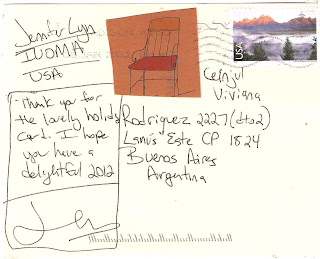 Jennifer Lyn
IUOMA
USA
Thank you for
the lovely holiday
card. I hope
you have a
delightful 2012
Jen
USA
Viviana
Rodriguez 2227 (dto2)
Lanús Este CP 1824
Buenos Aires
Argentina